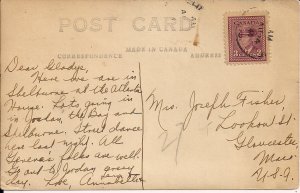 POST CARD
CORRESPONDENCE
MADE IN CANADA
ADDRESS
CANADA
Dear Gladys,
Here we are in
Shelburne at the Atlantic
House. Lots going
in Jordan, the Bay and
Shelburne. Street dance
here last night. All
folks are well.
to Jordan every
day. Love,
Mrs. Joseph Fisher,
Lookout St.
Gloucester,
Mass
U.S.A.